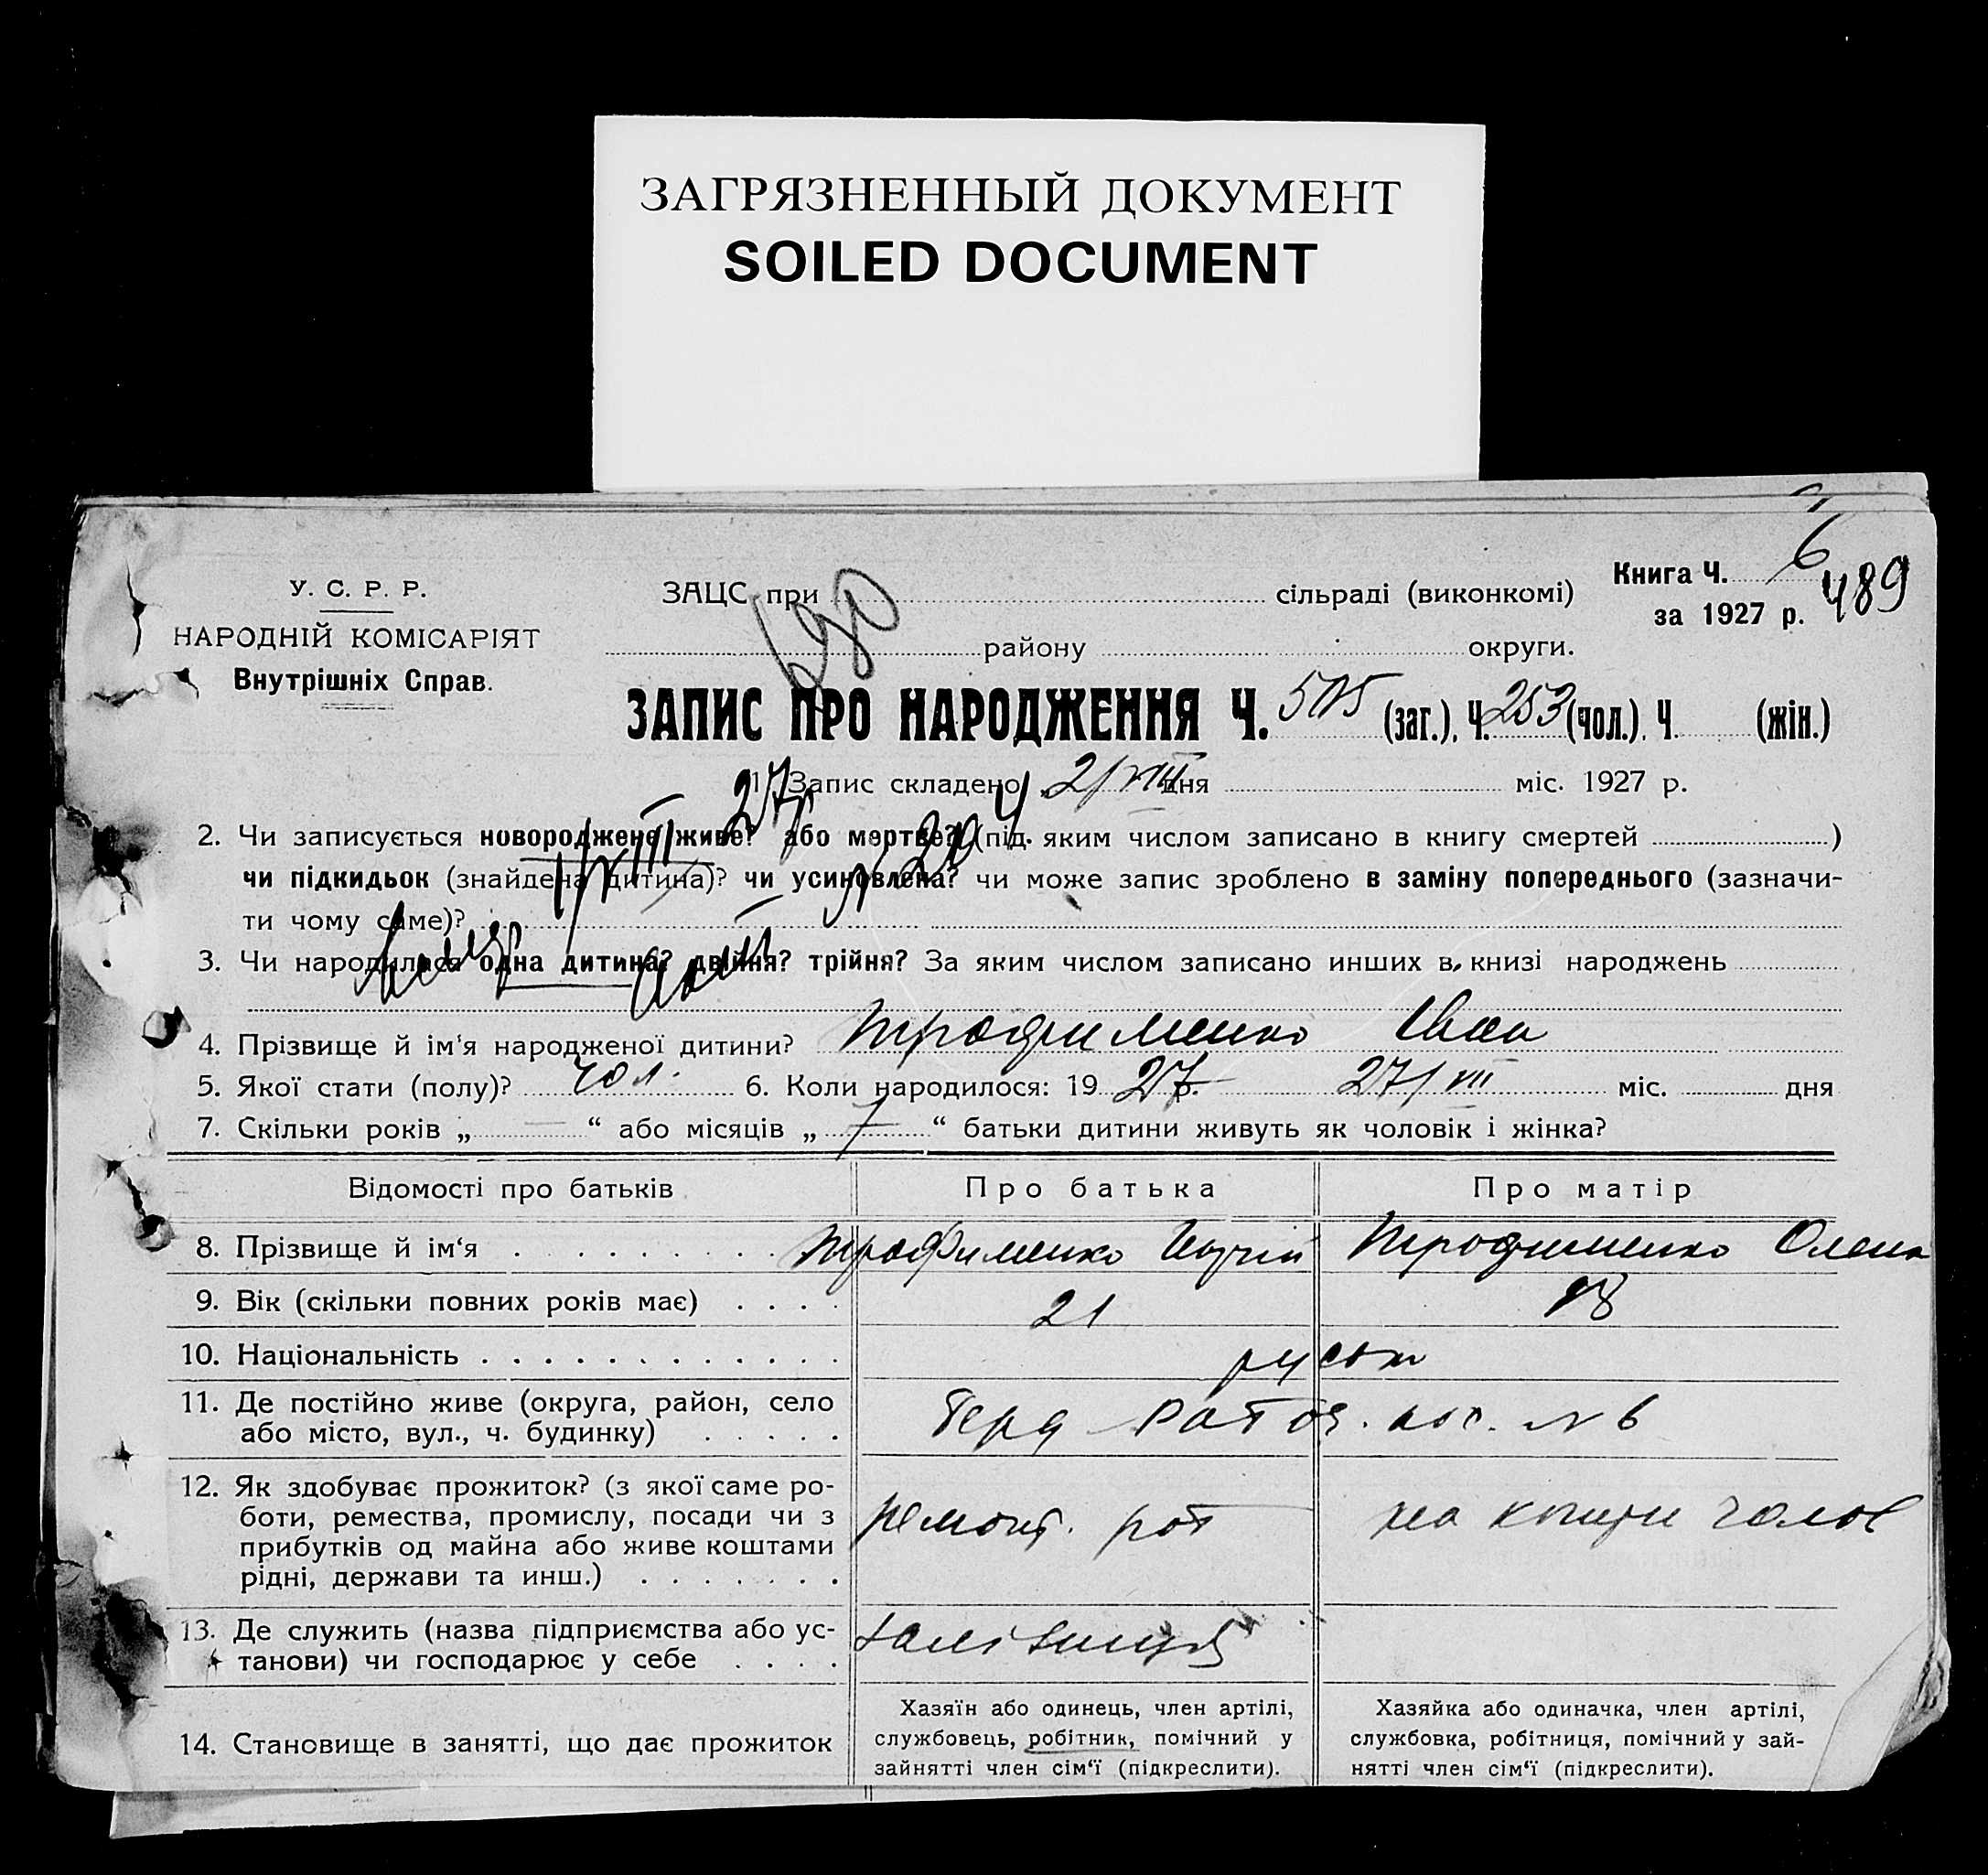 ЗАГРЯЗНЕННЫЙ ДОКУМЕНТ
SOILED DOCUMENT
Книга Ч. 6
за 1927 р. 489
У. С. Р. Р.
НАРОДНІЙ КОМІСАРІЯТ
Внутрішніх Справ.
ЗАЦС при сільраді (виконкомі)
району округи.
690
ЗАПИС ПРО НАРОДЖЕННЯ Ч. 505 (заг.), Ч. 253 (чол.), Ч. (жін.)
1. Запис складено „2/VIII дня міс. 1927 р.
2. Чи записується новороджене живе? або мертве? (під яким числом записано в книгу смертей )
чи підкидьок (знайдена дитина)? чи усиновлена? чи може запис зроблено в заміну попереднього (зазначи-
ти чому саме)?
3. Чи народилася одна дитина? двійня? трійня? За яким числом записано инших в книзі народжень
4. Прізвище й ім'я народженої дитини? Трофименко Іван
5. Якої стати (полу)? чол. 6. Коли народилося: 1927 р. 27/VII міс. дня
7. Скільки років „ — “ або місяців „ 7 “ батьки дитини живуть як чоловік і жінка?
Відомості про батьків Про батька Про матір
8. Прізвище й ім'я Трофименко Трофименко Олена
9. Вік (скільки повних років має) 21 18
10. Національність
11. Де постійно живе (округа, район, село
або місто, вул., ч. будинку) № 6
12. Як здобуває прожиток? (з якої саме ро-
боти, ремества, промислу, посади чи з
прибутків од майна або живе коштами
рідні, держави та инш.) ремонт. роб на кошти чолов
13. Де служить (назва підприємства або ус-
танови) чи господарює у себе
14. Становище в занятті, що дає прожиток
Хазяїн або одинець, член артілі,
службовець, робітник, помічний у
зайнятті член сім'ї (підкреслити).
Хазяйка або одиначка, член артілі,
службовка, робітниця, помічний у зай-
нятті член сім'ї (підкреслити).